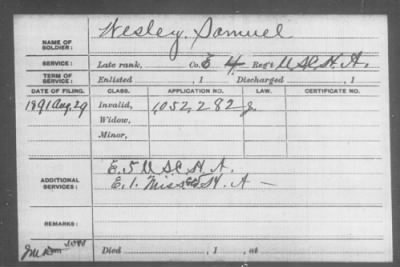 NAME OF SOLDIER: Wesley, Samuel
SERVICE: Late rank, Co. E 4 Reg't U.S.C.H.A.
TERM OF SERVICE: Enlisted , 1 Discharged , 1
DATE OF FILING. CLASS. APPLICATION NO. LAW. CERTIFICATE NO.
1891 Aug. 29 Invalid, 1,052,282
Widow,
Minor,
ADDITIONAL SERVICES: E. 5 U.S.C.H.A.
E. 1. Miss H. A
REMARKS:
Died , 1 , at